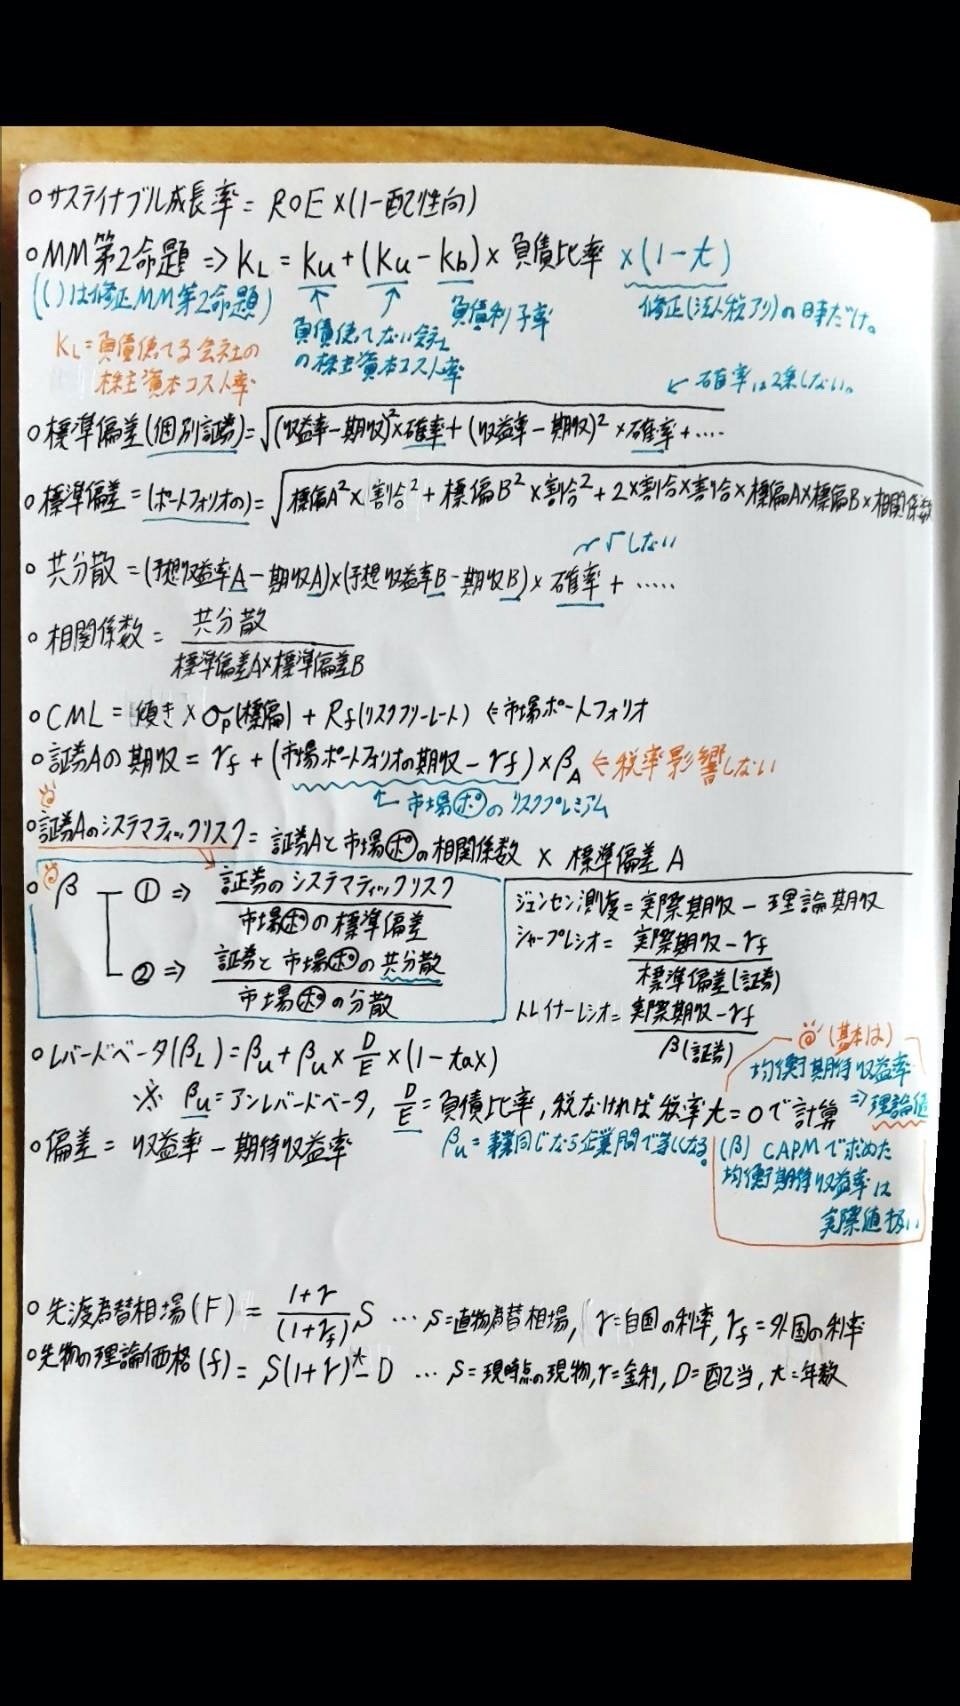 ○サステイナブル成長率 = ROE×(1-配当性向)
○MM第2命題 ⇒ KL = Ku+(Ku-Kb)×負債比率 ×(1-t)
(( )は修正MM第2命題)
負債使てない会社の株主資本コスト率
負債利子率
修正(法人税アリ)の時だけ。
KL=負債使てる会社の
株主資本コスト率
← 確率は2乗しない。
○標準偏差(個別証券)=√(収益率-期収)²×確率+(収益率-期収)²×確率+‥‥
○標準偏差=(ポートフォリオの)=√標偏A²×割合²+標偏B²×割合²+2×割合×割合×標偏A×標偏B×相関係数
√しない
○共分散=(予想収益率A-期収A)×(予想収益率B-期収B)×確率+‥‥‥
○相関係数= 共分散
標準偏差A×標準偏差B
○CML = 傾き×σp(標偏)+Rf(リスクフリーレート) ←市場ポートフォリオ
○証券Aの期収= rf+(市場ポートフォリオの期収-rf)×βA ←税率影響しない
←市場ポのリスクプレミアム
○証券Aのシステマティックリスク=証券Aと市場ポの相関係数 × 標準偏差A
○β ①⇒ 証券のシステマティックリスク
市場ポの標準偏差
②⇒ 証券と市場ポの共分散
市場ポの分散
ジェンセン測度=実際期収-理論期収
シャープレシオ= 実際期収-rf
標準偏差(証券)
トレイナーレシオ=実際期収-rf
β(証券)
(基本は)
均衡期待収益率
⇒理論値
(β) CAPMで求めた
均衡期待収益率は
実際値扱い
○レバードベータ(βL)=βu+βu×D/E×(1-tax)
※ βu=アンレバードベータ, D/E=負債比率,税なければ税率t=0で計算
βu=事業同じなら企業間で等しくなる。
○偏差= 収益率-期待収益率
○先渡為替相場(F)= 1+r/(1+rf) S …S=直物為替相場, r=自国の利率, rf=外国の利率
○先物の理論価格(f)= S(1+r)^t-D …S=現時点の現物,r=金利,D=配当,t=年数